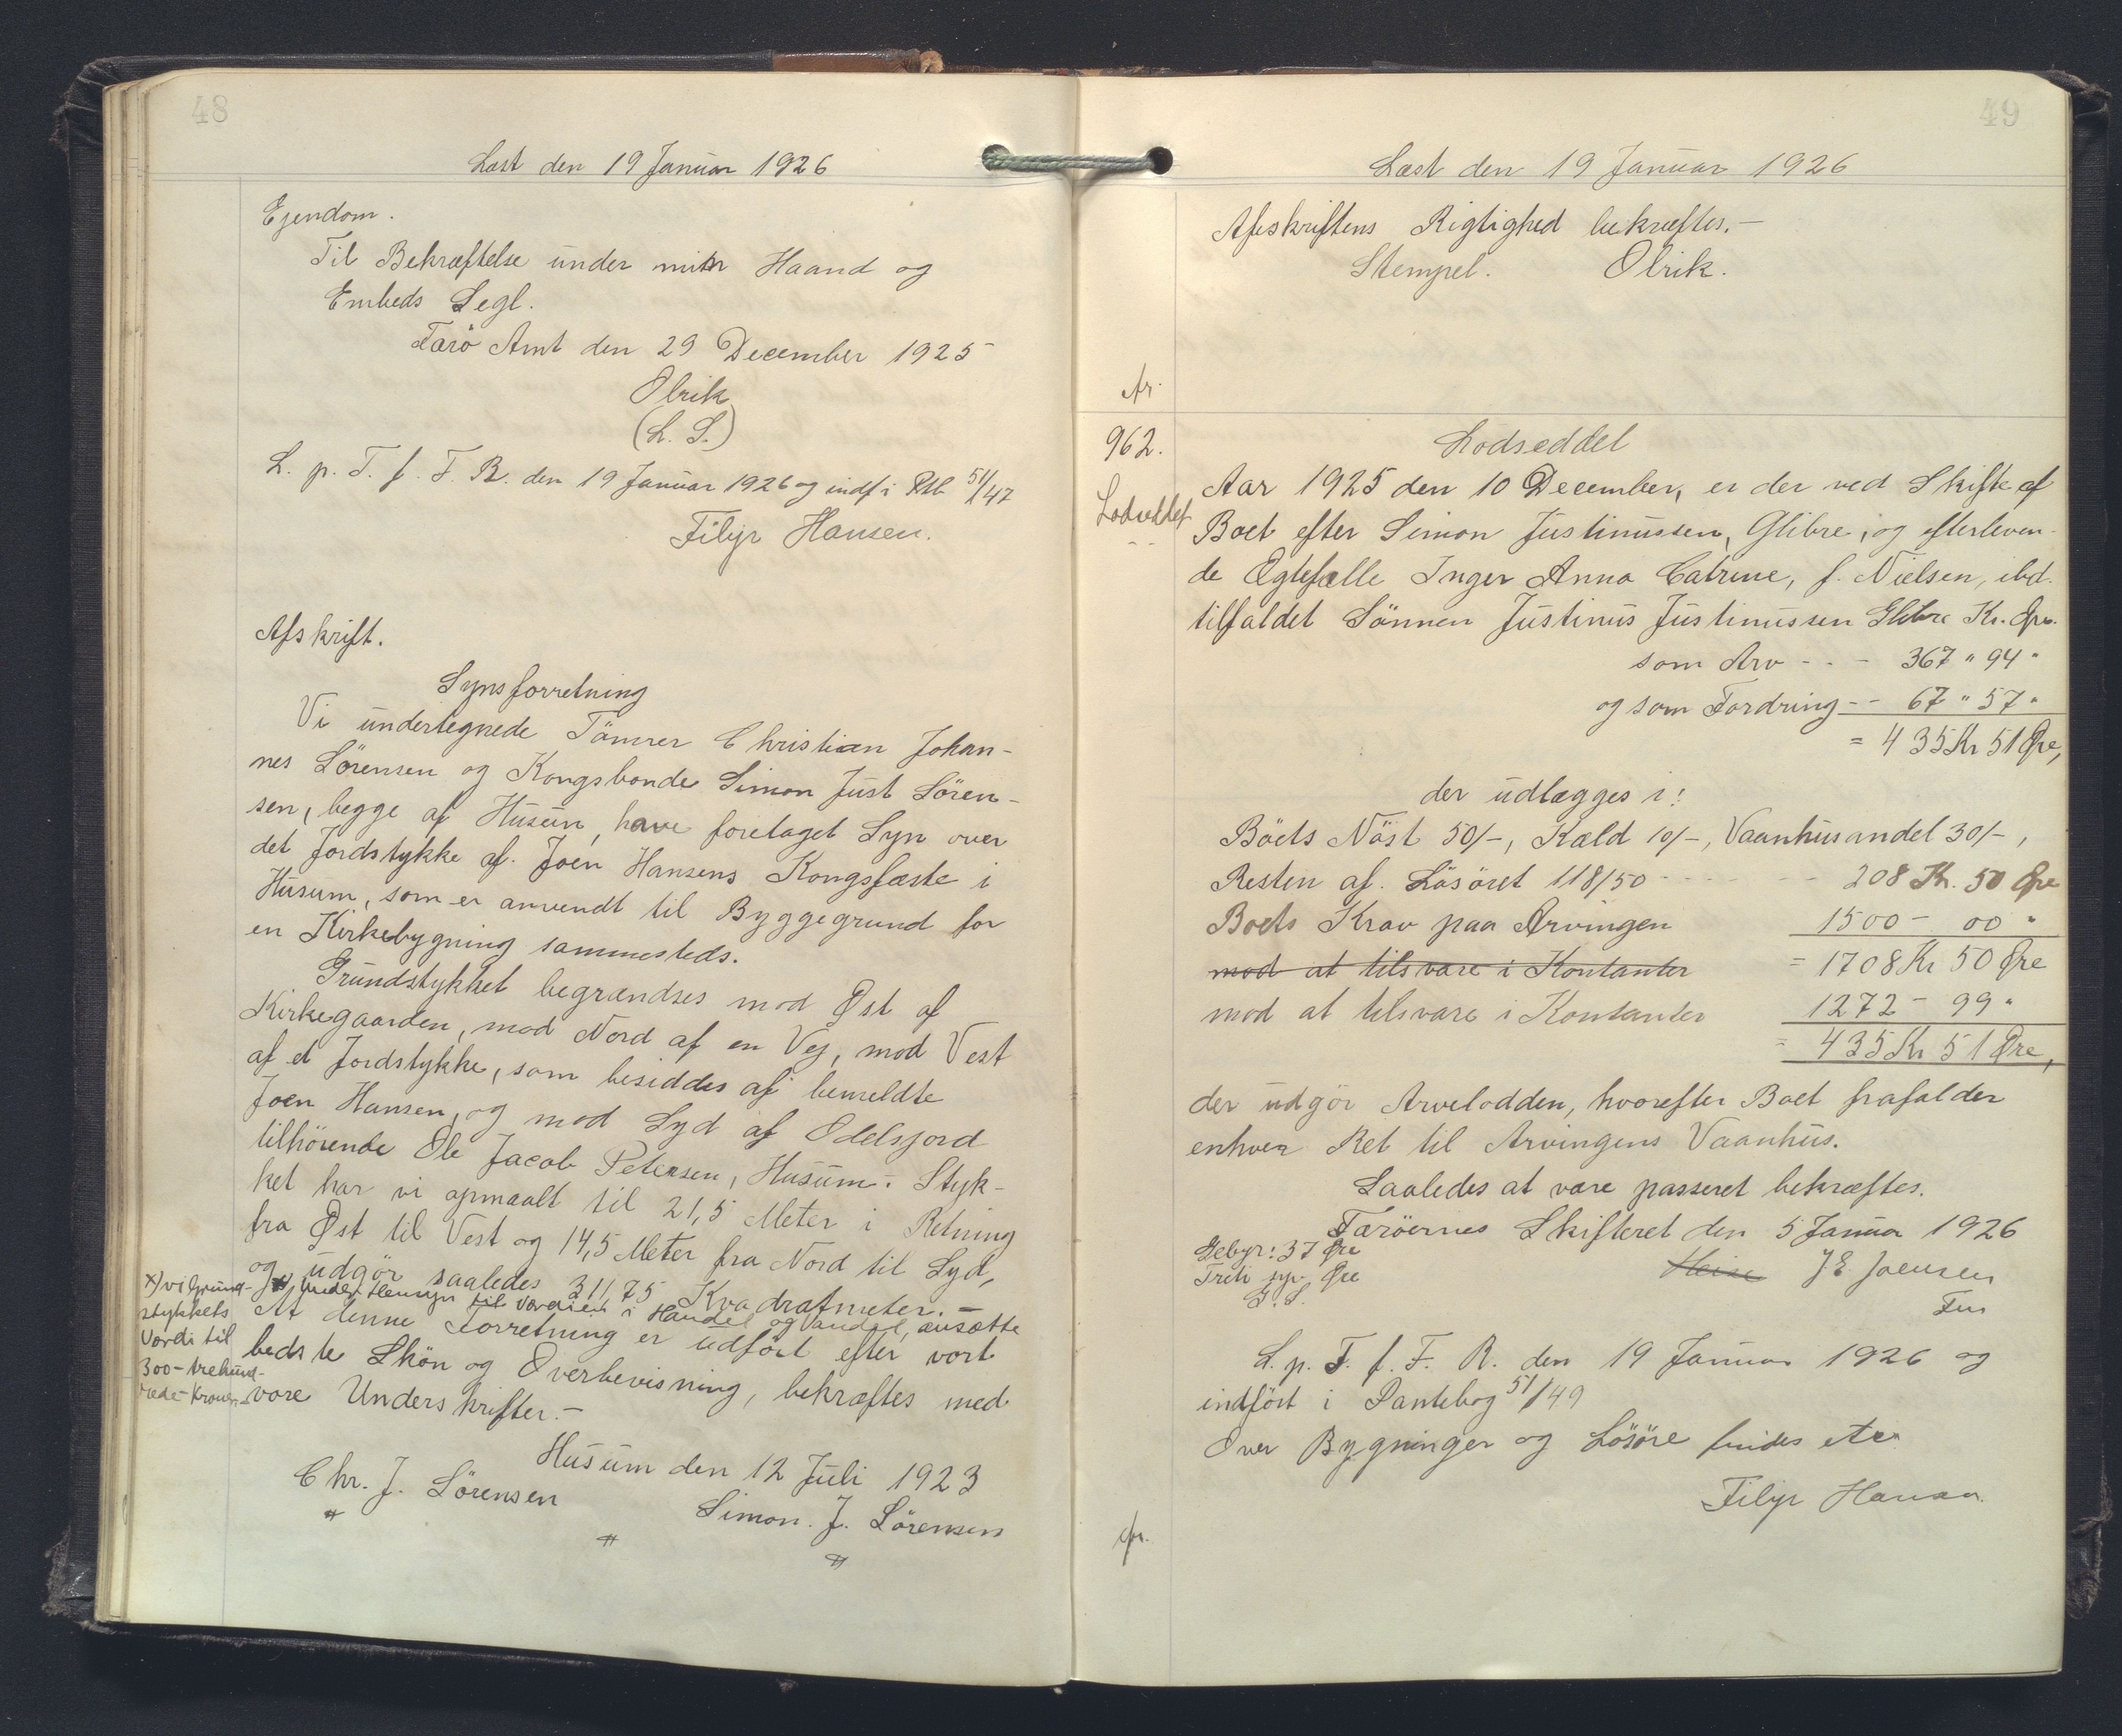 48
Læst den 19 Januar 1926
Ejendom.
Til Bekræftelse under min Haand og
Embeds Segl.
Færö Amt den 29 December 1925
Olrik
(L. S.)
L. p. T. f. F. R. den 19 Januar 1926 og indf i Ptb 51/47
Filip Hansen.
Afskrift.
Synsforretning
Vi undertegnede Tömrer Christian Johan-
nes Sörensen og Kongsbonde Simon Just Sören-
sen, begge af Husum, have foretaget Syn over
det Jordstykke af Joen Hansens Kongsfæste i
Husum, som er anvendt til Byggegrund for
en Kirkebygning sammesteds.
Grundstykket begrændses mod Øst af
Kirkegaarden, mod Nord af en Vej, mod Vest
af et Jordstykke, som besiddes af bemeldte
Joen Hansen, og mod Syd af Odelsjord
tilhörende Ole Jacob Petersen, Husum. Styk-
ket har vi opmaalt til 21,5 Meter i Retning
fra Øst til Vest og 14,5 Meter fra Nord til Syd,
og udgör saaledes 311,75 Kvadratmeter. -
x) Under Hensyn til Værdien i Handel og Vandel, ansætte
x) vi Grund-
stykkets
Værdi til
300 - trehund-
rede - Kroner.
At denne Forretning er udfört efter vort
bedste Skön og Overbevisning, bekræftes med
vore Underskrifter. -
Husum den 12 Juli 1923
Chr. J. Sörensen
Simon. J. Sörensen
49
Læst den 19 Januar 1926
Afskriftens Rigtighed bekræftes. -
Stempel. Olrik.
962.
Lodseddel
Lodseddel
Aar 1925 den 10 December, er der ved Skifte af
Boet efter Simon Justinussen, Glibre, og efterleven-
de Ægtefælle Inger Anna Catrine, f. Nielsen, ibd.
tilfaldet Sönnen Justinus Justinussen Glibre Kr. Øre.
som Arv - - - 367 " 94 "
og som Fordring - - 67 " 57 "
= 435 Kr 51 Øre,
der udlægges i:
Boets Nöst 50/-, Kæld 10/-, Vaanhusandel 30/-,
Resten af Lösöret 118/50 - - - - - - 208 Kr. 50 Øre
Boets Krav paa Arvingen 1500 - 00 "
mod at tilsvare i Kontanter = 1708 Kr 50 Øre
mod at tilsvare i Kontanter 1272 - 99 "
= 435 Kr 51 Øre,
der udgör Arvelodden, hvorefter Boet frafalder
enhver Ret til Arvingens Vaanhus.
Saaledes at være passeret bekræftes.
Færöernes Skifteret den 5 Januar 1926
Gebyr: 37 Øre
Heise J. E. Joensen
Fm
L. p. T. f. F. R. den 19 Januar 1926 og
indfört i Pantebog 51/49
Over Bygninger og Lösöre findes
Filip Hansen